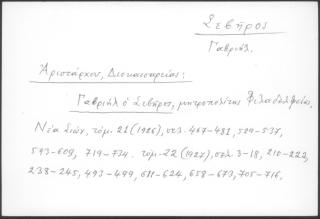 Σεβῆρος
Γαβριήλ.
Ἀριστάρχου, Διοκαισαρείας:
Γαβριὴλ ὁ Σεβῆρος, μητροπολίτης Φιλαδελφείας,
Νέα Σιών, τόμ. 21 (1926), σελ. 467-481, 529-537,
593-609, 719-734. τόμ. 22 (1927), σελ. 3-18, 210-222,
238-245, 493-499, 611-624, 658-673, 705-716.